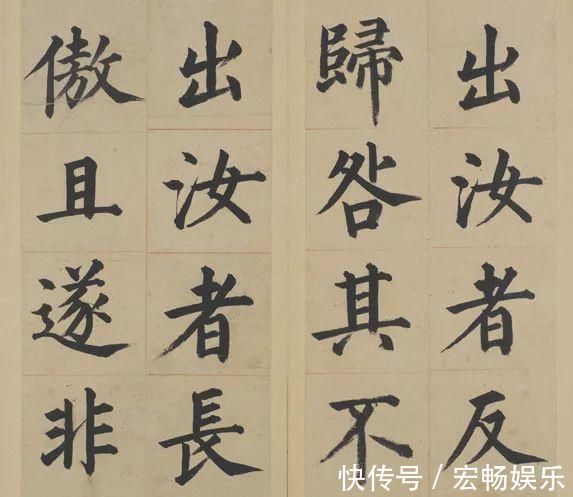 出汝者反
歸咎其不
出汝者長
傲且遂非
快传号 / 宏畅娱乐